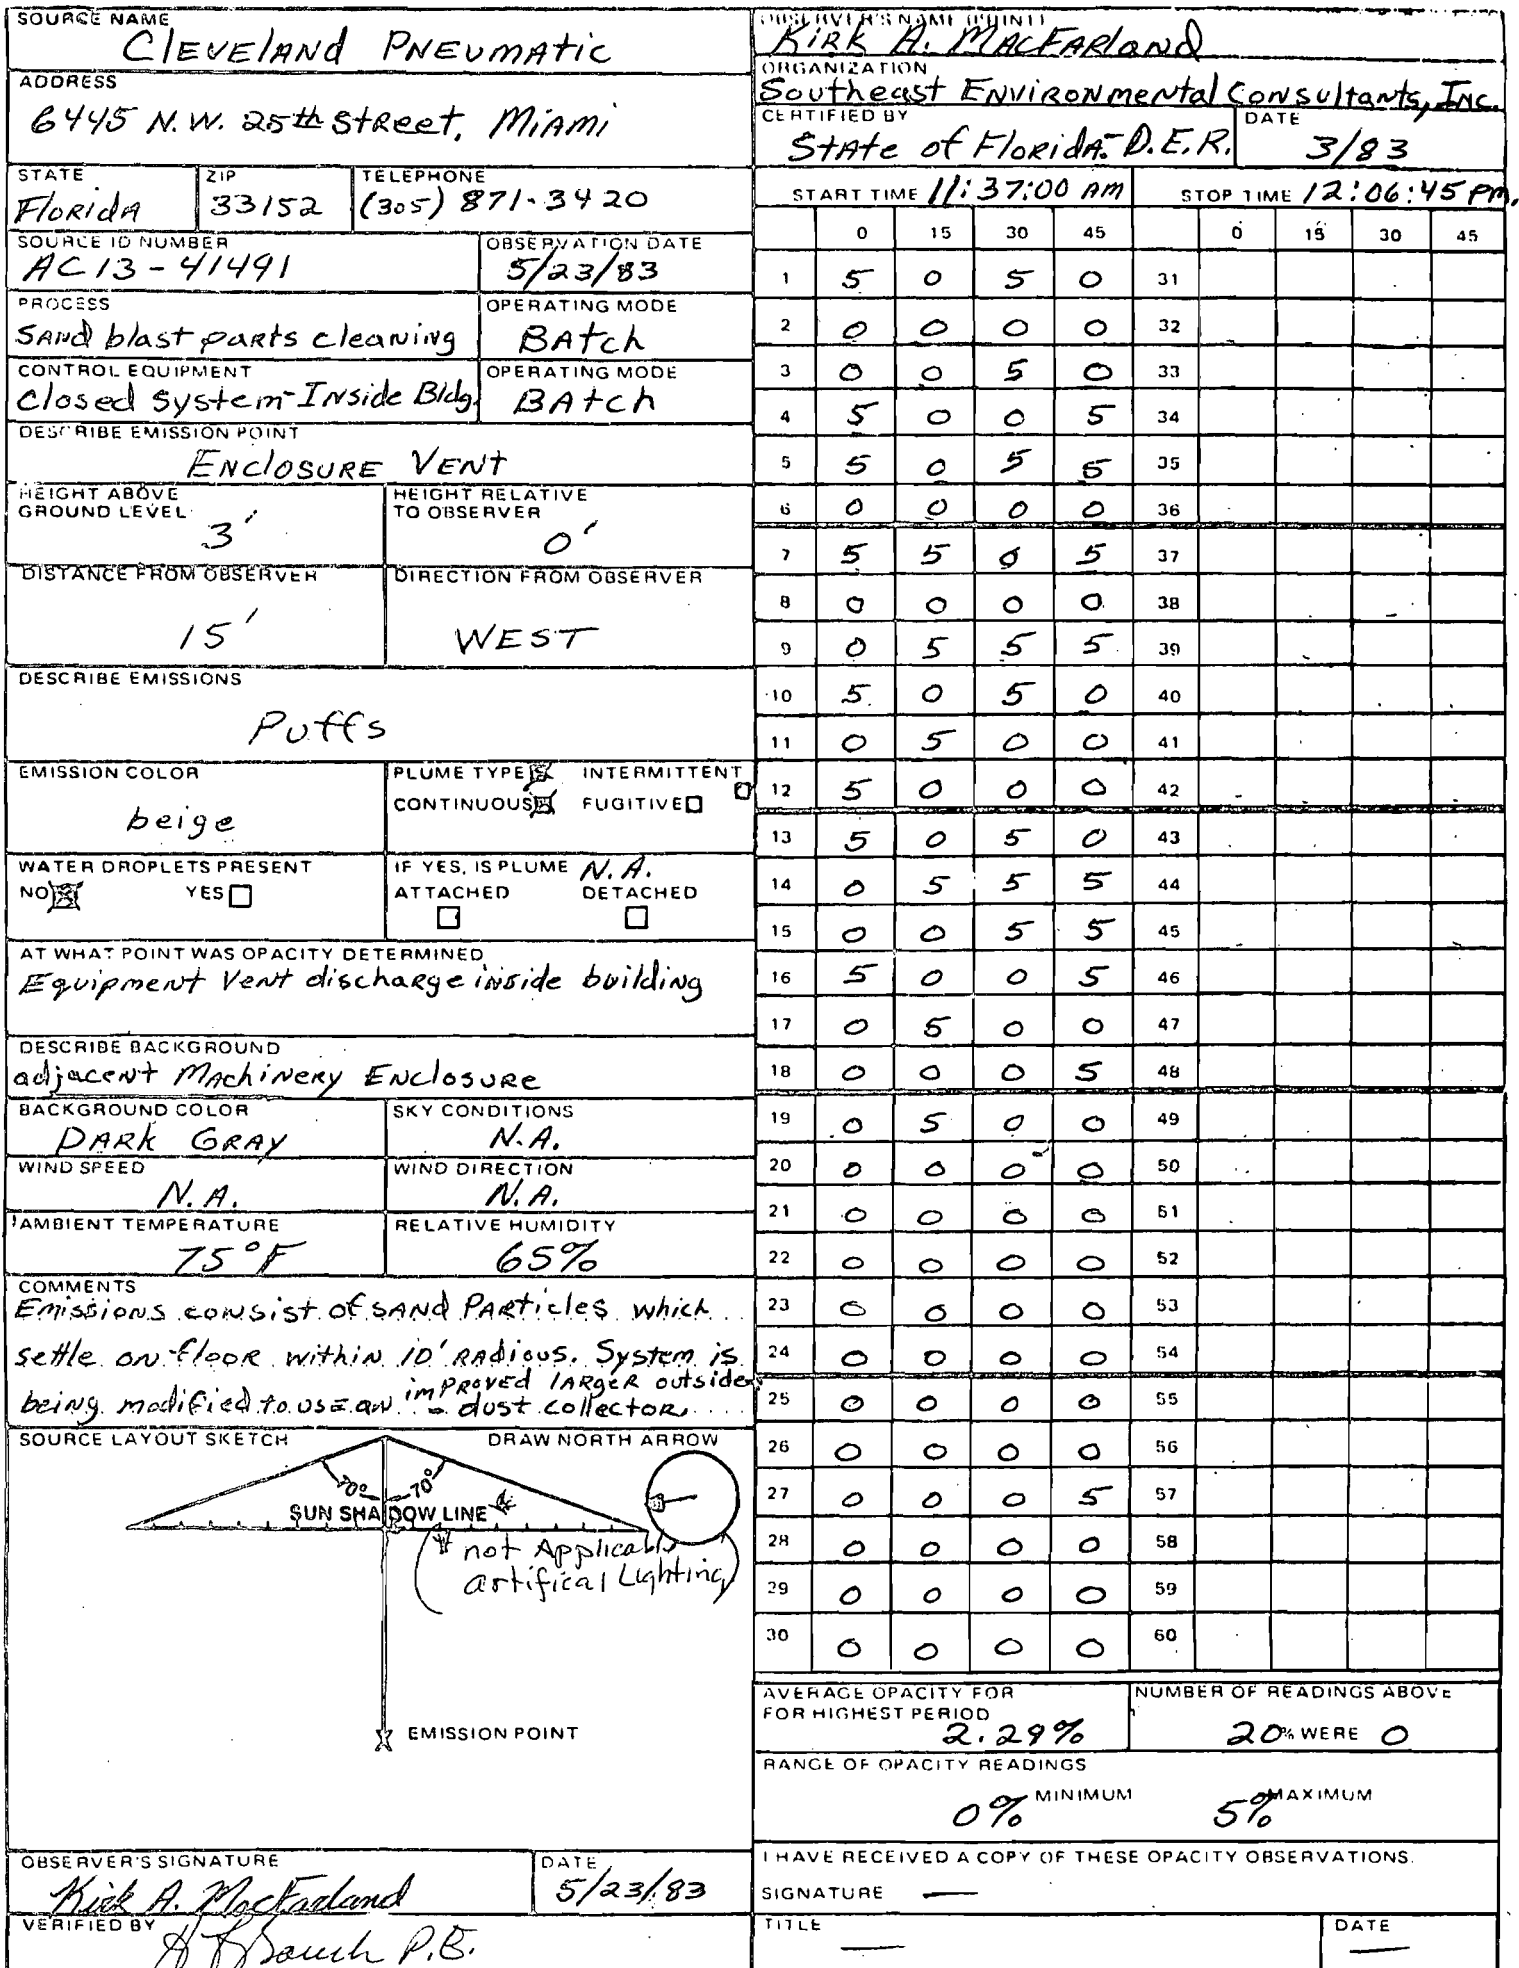 SOURCE NAME
Cleveland Pneumatic
ADDRESS
6445 N.W. 25th Street, Miami
STATE ZIP TELEPHONE
Florida 33152 (305) 871-3420
SOURCE ID NUMBER OBSERVATION DATE
AC13-41491 5/23/83
PROCESS OPERATING MODE
Sand blast parts cleaning Batch
CONTROL EQUIPMENT OPERATING MODE
Closed System-Inside Bldg. Batch
DESCRIBE EMISSION POINT
Enclosure Vent
HEIGHT ABOVE GROUND LEVEL HEIGHT RELATIVE TO OBSERVER
3' 0'
DISTANCE FROM OBSERVER DIRECTION FROM OBSERVER
15' WEST
DESCRIBE EMISSIONS
Puffs
EMISSION COLOR PLUME TYPE INTERMITTENT
beige CONTINUOUS FUGITIVE
WATER DROPLETS PRESENT IF YES, IS PLUME N.A.
NO YES ATTACHED DETACHED
AT WHAT POINT WAS OPACITY DETERMINED
Equipment Vent discharge inside building
DESCRIBE BACKGROUND
adjacent Machinery Enclosure
BACKGROUND COLOR SKY CONDITIONS
Dark Gray N.A.
WIND SPEED WIND DIRECTION
N.A. N.A.
AMBIENT TEMPERATURE RELATIVE HUMIDITY
75°F 65%
COMMENTS
Emissions consist of sand Particles which
settle on floor within 10' radious. System is
being modified to use an improved larger outside
dust collector.
SOURCE LAYOUT SKETCH DRAW NORTH ARROW
70° 70°
SUN SHADOW LINE
(not Applicable
artifical Lighting)
EMISSION POINT
OBSERVER'S SIGNATURE DATE
Kirk A. MacFarland 5/23/83
VERIFIED BY
P.E.
OBSERVER'S NAME (PRINT)
Kirk A. MacFarland
ORGANIZATION
Southeast Environmental Consultants, Inc.
CERTIFIED BY DATE
State of Florida-D.E.R. 3/83
START TIME 11:37:00 AM STOP TIME 12:06:45 PM.
0 15 30 45 0 15 30 45
1 5 0 5 0 31
2 0 0 0 0 32
3 0 0 5 0 33
4 5 0 0 5 34
5 5 0 5 5 35
6 0 0 0 0 36
7 5 5 0 5 37
8 0 0 0 0 38
9 0 5 5 5 39
10 5 0 5 0 40
11 0 5 0 0 41
12 5 0 0 0 42
13 5 0 5 0 43
14 0 5 5 5 44
15 0 0 5 5 45
16 5 0 0 5 46
17 0 5 0 0 47
18 0 0 0 5 48
19 0 5 0 0 49
20 0 0 0 0 50
21 0 0 0 0 51
22 0 0 0 0 52
23 0 0 0 0 53
24 0 0 0 0 54
25 0 0 0 0 55
26 0 0 0 0 56
27 0 0 0 5 57
28 0 0 0 0 58
29 0 0 0 0 59
30 0 0 0 0 60
AVERAGE OPACITY FOR NUMBER OF READINGS ABOVE
FOR HIGHEST PERIOD
2.29% 20% WERE 0
RANGE OF OPACITY READINGS
0% MINIMUM 5% MAXIMUM
I HAVE RECEIVED A COPY OF THESE OPACITY OBSERVATIONS.
SIGNATURE —
TITLE — DATE —